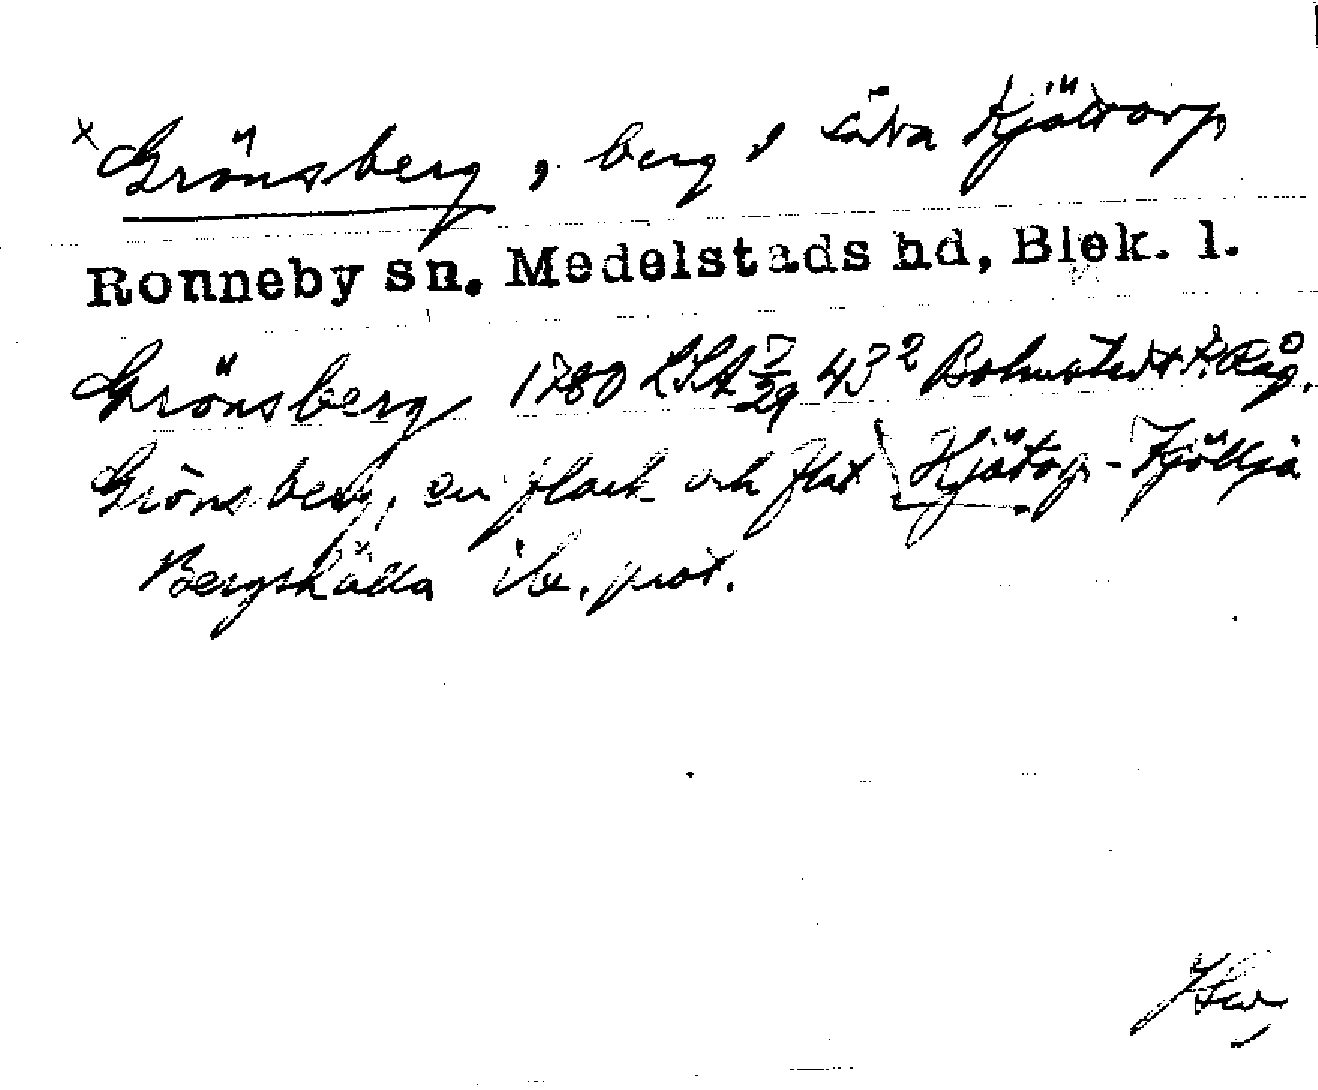 × Grönsberg, berg i södra Kjötorp
Ronneby sn. Medelstads hd, Blek. l.
Grönsberg 1780 LSA 7/29 43² Råg.
Grönsberg, en flack och flat Kjötorp -
Bergskälla ib. prot.